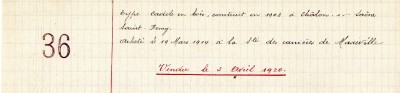 36
type cadole en bois, construit en 1903 à Châlon-s-Saône
Saint-Remy.
acheté le 19 Mars 1914 à la Sté des carrières de Maxeville
Vendu le 3 Avril 1920.